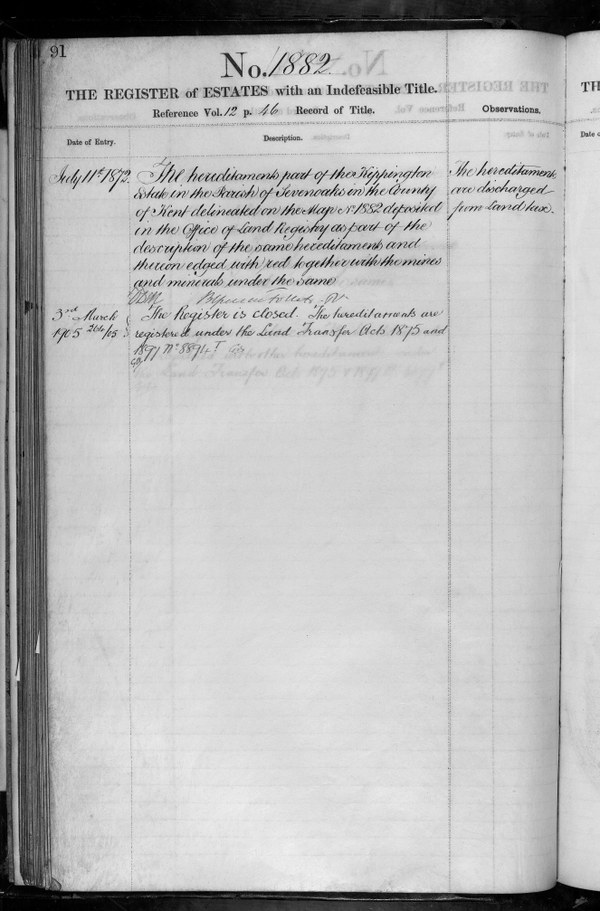 91
No. 1882
THE REGISTER of ESTATES with an Indefeasible Title.
Reference Vol. 12 p. 46 Record of Title.
Observations.
Date of Entry.
Description.
July 11th 1872.
The hereditaments part of the Kippington
Estate in the Parish of Sevenoaks in the County
of Kent delineated on the Map No 1882 deposited
in the Office of Land Registry as part of the
description of the same hereditaments and
thereon edged with red together with the mines
and minerals under the same
The hereditaments
are discharged
from Land tax.
3rd March
1905 264/05
The Register is closed. The hereditaments are
registered under the Land Transfer Acts 1875 and
1897 No 8894
TH
Date o